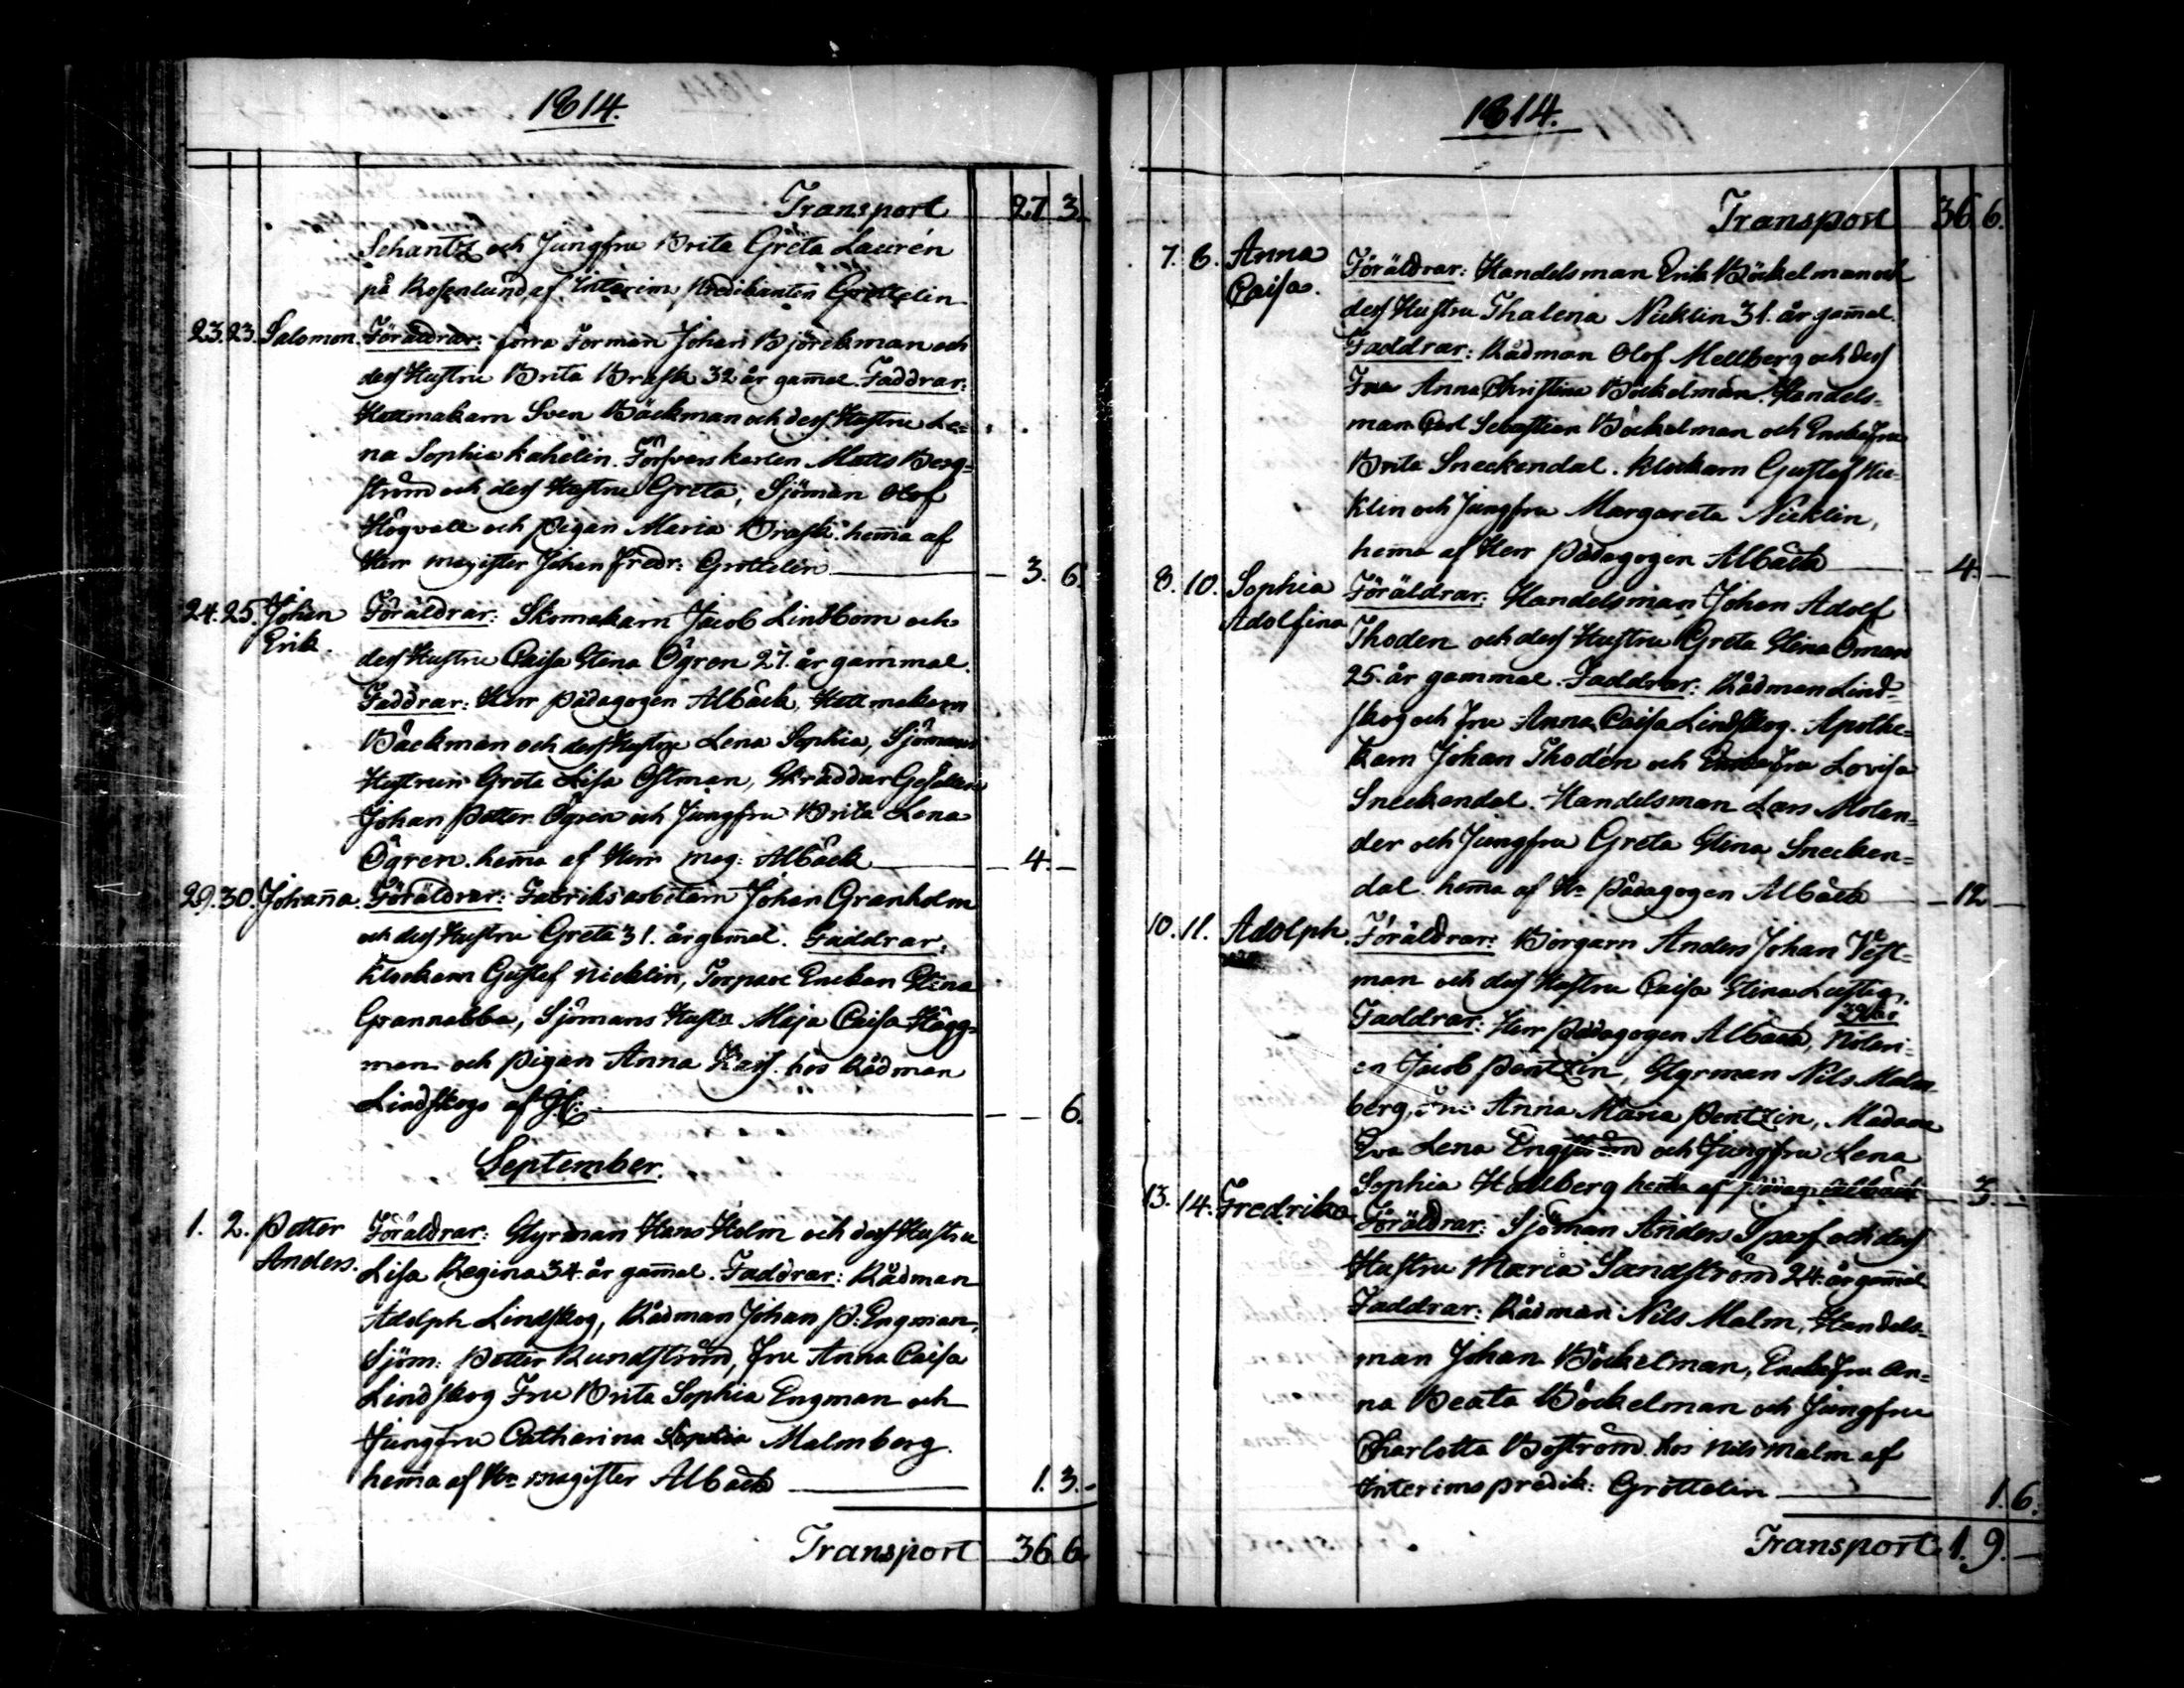 1814.
Transport 27 3.
Schantz och Jungfru Brita Greta Laurén
på Rosenlund af Interims Predikanten Grottelin
23. 23. Salomon. Föräldrar: förra Forman Johan Björckman och
dess Hustru Brita Brask 32 år gam̄al. Faddrar:
Hattmakarn Sven Bäckman och dess Hustru Le=
na Sophia Kahelin. Matts Berg=
ström och dess Hustru Greta, Sjöman Olof
Högvall och Pigan Maria Brask. hem̄a af
Herr magister Johan Fredr: Grottelin 3. 6.
24. 25. Johan Erik. Föräldrar: Skomakarn Jacob Lindbom och
dess Hustru Caisa Stina Ögren 27. år gammal.
Faddrar: Herr Pädagogen Albäck, Hattmakarn
Bäckman och dess Hustru Lena Sophia, Sjömans
Hustrun Greta Lisa Östman, Skräddar Gesällen
Johan Petter Ögren och Jungfru Brita Lena
Ögren. hem̄a af Herr mag: Albäck 4. –
29. 30. Johan̄a. Föräldrar: Fabriks arbetarn Johan Granholm
och dess Hustru Greta 31. år gam̄al. Faddrar:
Klockarn Gustaf Nicklin, Torpare Enckan Stina
Grannabba, Sjömans Hustru Maja Caisa Hägg=
man och Pigan Anna hos Rådman
Lindskogs af 6.
September.
1. 2. Petter Anders. Föräldrar: Styrman Hans Holm och dess Hustru
Lisa Regina 34. år gam̄al. Faddrar: Rådman
Adolph Lindskog, Rådman Johan P: Engman,
Sjöm: Petter Rundström, Fru Anna Caisa
Lindskog Fru Brita Sophia Engman och
Jungfru Catharina Sophia Malmberg.
hem̄a af Hr magister Albäck 1. 3. –
Transport 36 6.
1814.
Transport 36 6.
7. 8. Anna Caisa. Föräldrar: Handelsman Erik Böckelman och
dess Hustru Thalena Nicklin 31. år gam̄al.
Faddrar: Rådman Olof Mellberg och dess
Fru Anna Christina Böckelman. Handels=
man Carl Sebastian Böckelman och Enckefru
Brita Sneckendal. Klockarn Gustaf Nic=
klin och Jungfru Margareta Nicklin,
hem̄a af Herr Pädagogen Albäck 4. –
8. 10. Sophia Adolfina Föräldrar: Handelsman Johan Adolf
Thoden och dess Hustru Greta Stina Öman
25. år gammal. Faddrar: Rådman Lind=
skog och Fru Anna Caisa Lindskog. Apothe=
karn Johan Thodén och Enckefru Lovisa
Sneckendal. Handelsman Lars Molan=
der och Jungfru Greta Stina Snecken=
dal. hem̄a af Hr Pädagogen Albäck 12 –
10. 11. Adolph. Föräldrar: Borgarn Anders Johan Vest=
man och dess Hustru Caisa Stina Lustig.
32 år
Faddrar: Herr Pädagogen Albäck, Notari=
en Jacob Pentzin, Styrman Nils Malm
berg, Fru Anna Maria Pentzin, Madame
Eva Lena och Jungfru Lena
Sophia Hallberg hem̄a af Pädag: Albäck 3 –
13. 14. Fredrika Föräldrar: Sjöman Anders Sparf och dess
Hustru Maria Sandström 24. år gam̄al.
Faddrar: Rådman Nils Malm, Handels=
man Johan Böckelman, Enckefru An=
na Beata Böckelman och Jungfru
Charlotta Boström. hos Nils Malm af
Interims predik: Grottelin 1. 6.
Transport 1. 9. –